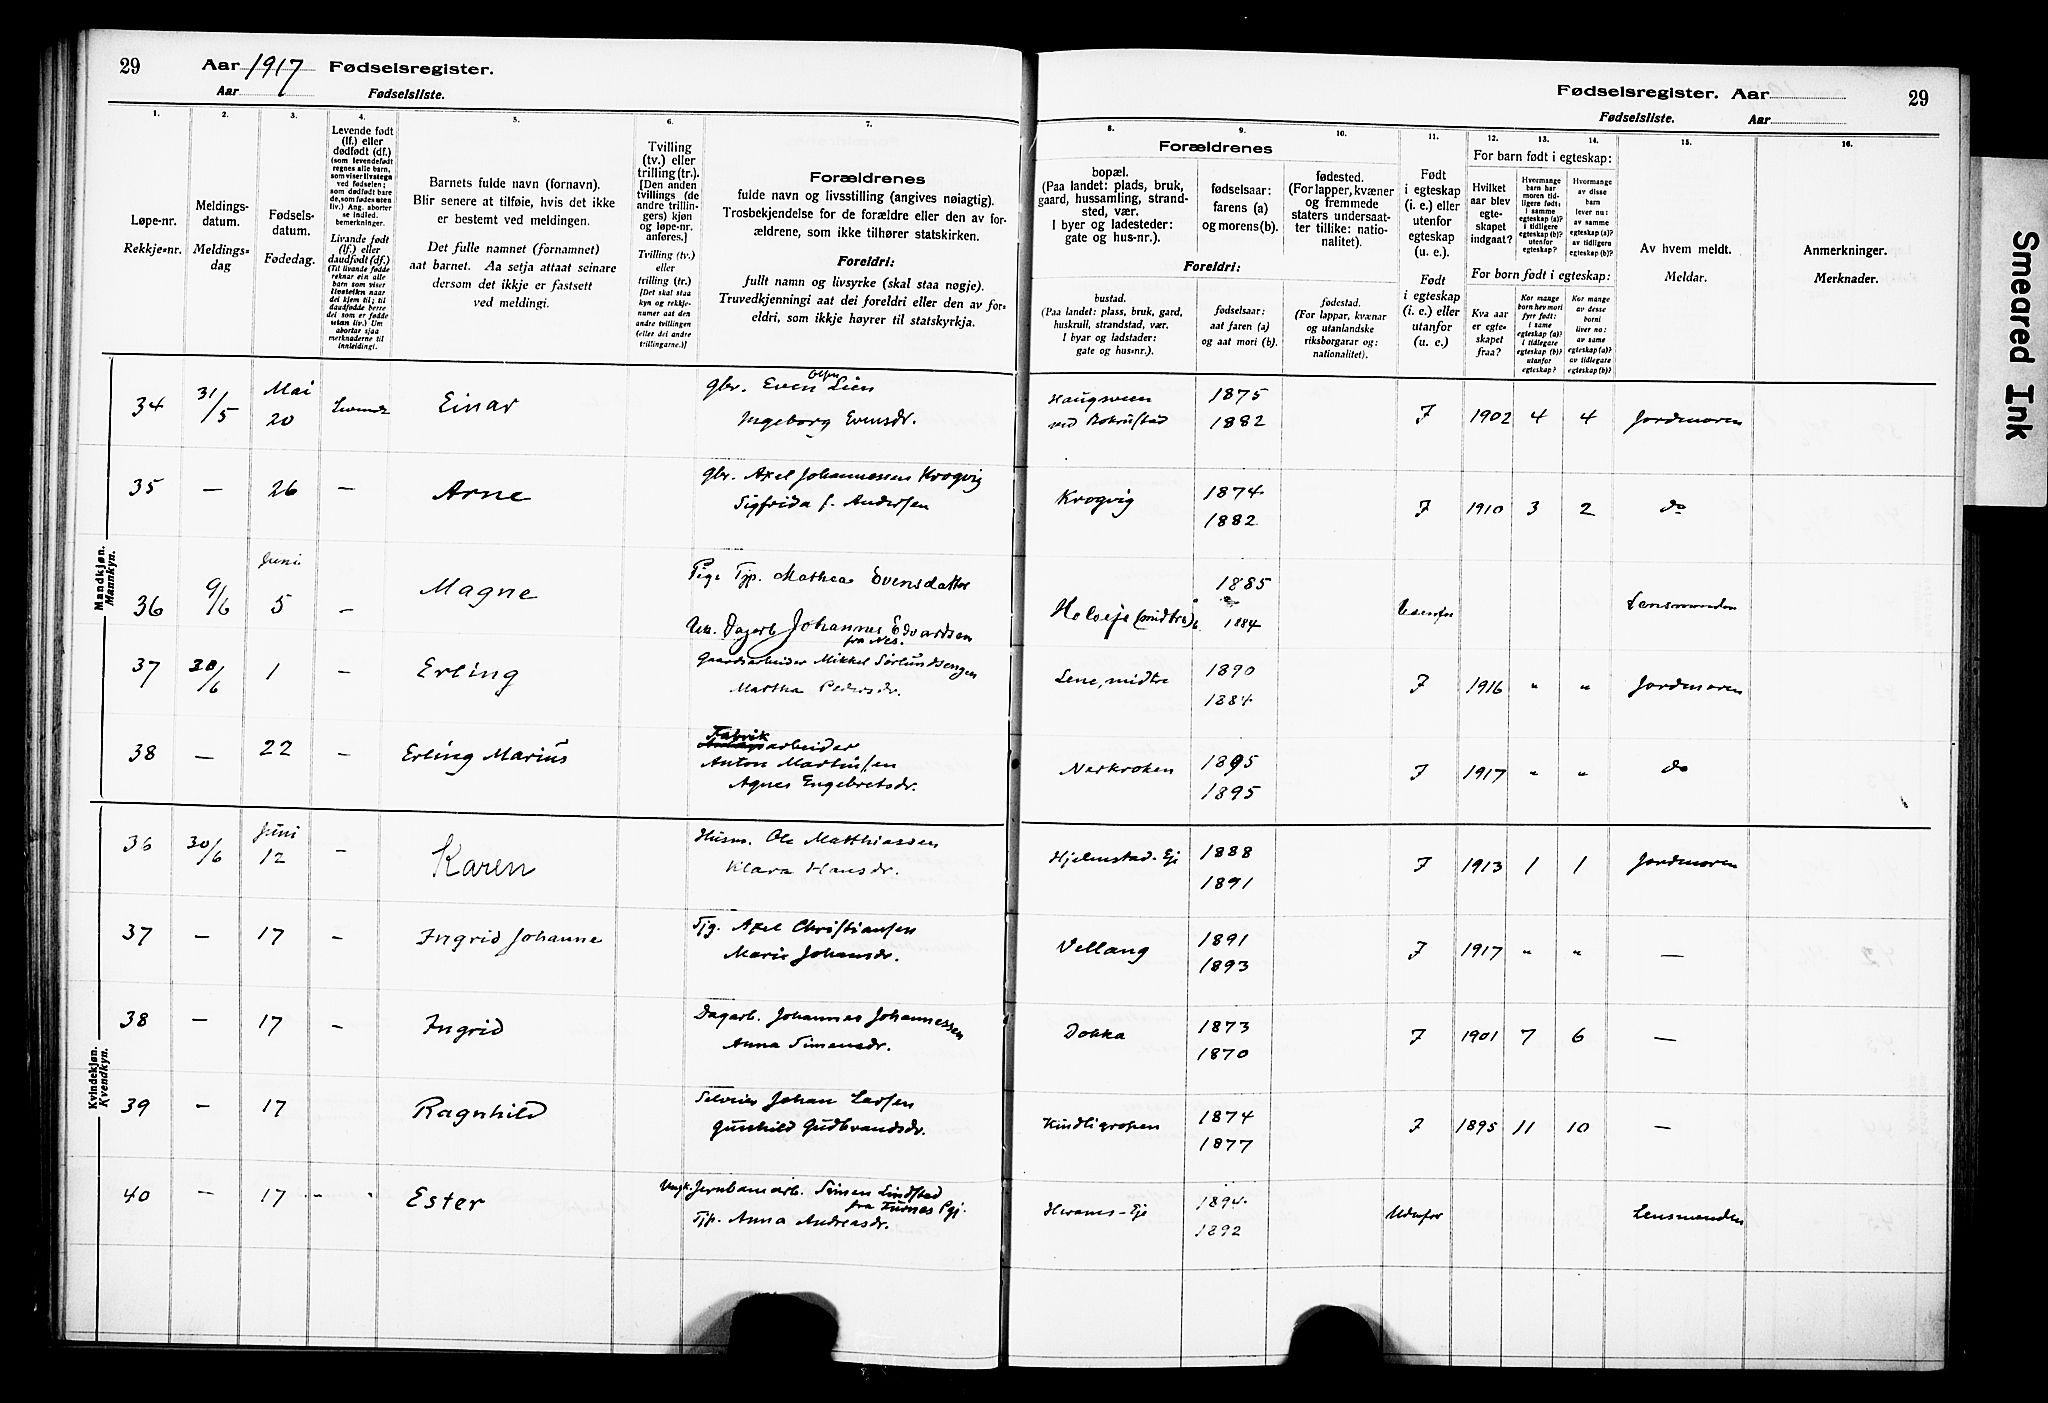 29 Aar 1917 Fødselsregister.
Aar Fødselsliste.
Fødselsregister. Aar 29
Fødselsliste. Aar
Smeared Ink
1. 2. 3. 4. 5. 6. 7. 8. 9. 10. 11. 12. 13. 14. 15. 16.
Løpe-nr.
Rekkje-nr.
Meldings-
datum.
Meldings-
dag
Fødsels-
datum.
Fødedag.
Levende født
(lf.) eller
dødfødt (df.)
(som levendefødt
regnes alle barn,
som viser livstegn
ved fødselen;
som dødfødt bare
de, som fødes uten
liv.) Ang. aborter
se indled.
bemerkninger.
Livande født
(lf.) eller
daudfødt (df.)
(Til livande fødde
reknar ein alle
barn som viser
livsteikn naar
dei kjem til; til
daudfødde berre
dei som er fødde
utan liv.) Um
abortar sjaa
merknaderne til
innleidingi.
Barnets fulde navn (fornavn).
Blir senere at tilføie, hvis det ikke
er bestemt ved meldingen.
Det fulle namnet (fornamnet)
aat barnet. Aa setja attaat seinare
dersom det ikkje er fastsett
ved meldingi.
Tvilling
(tv.) eller
trilling (tr.).
[Den anden
tvillings (de
andre trillin-
gers) kjøn
og løpe-nr.
anføres.]
Tvilling (tv.)
eller
trilling (tr.)
[Det skal staa
kyn og rekkje-
numer aat den
andre tvillingen
(eller dei andre
trillingarne.)]
Forældrenes
fulde navn og livsstilling (angives nøiagtig).
Trosbekjendelse for de forældre eller den av for-
ældrene, som ikke tilhører statskirken.
Foreldri:
fullt namn og livsyrke (skal staa nøgje).
Truvedkjenningi aat dei foreldri eller den av for-
eldri, som ikkje høyrer til statskyrkja.
Forældrenes
bopæl.
(Paa landet: plads, bruk,
gaard, hussamling, strand-
sted, vær.
I byer og ladesteder:
gate og hus-nr.).
fødselsaar:
farens (a)
og morens (b).
fødested.
(For lapper, kvæner
og fremmede
staters undersaat-
ter tillike: natio-
nalitet).
Foreldri:
bustad.
(Paa landet: plass, bruk, gard,
huskrull, strandstad, vær.
I byar og ladstader:
gate og hus-nr.).
fødselsaar:
aat faren (a)
og aat mori (b).
fødestad.
(For lappar, kvænar
og utanlandske
riksborgarar og:
nationalitet).
Født
i egteskap
(i. e.) eller
utenfor
egteskap
(u. e.).
Født
i egteskap
(i. e.) eller
utanfor
(u. e.).
For barn født i egteskap:
Hvilket
aar blev
egte-
skapet
indgaat?
Hvormange
barn har
moren tid-
ligere født:
i samme
egteskap (a)?
i tidligere
egteskap (b)?
utenfor
egteskap?
Hvormange
av disse
barn
lever nu:
av samme
egteskap (a)?
av tidligere
egteskap (b)?
For born født i egteskap:
Kva aar
er egte-
skapet
fraa?
Kor mange
born hev mori
fyrr født:
i same
egteskap (a)?
i tidlegare
egteskap (b)?
utanfor
egteskap?
Kor mange
av desse
borni
liver no:
av same
egteskap (a)?
av tidlegare
egteskap (b)?
Av hvem meldt.
Meldar.
Anmerkninger.
Merknader.
Mandkjøn.
Mannkyn.
34 31/5 Mai 20 Levende Einar Gbr. Even Olsen Lien 1875 F 1902 4 4 Jordmoren
Ingeborg Evensdr. 1882
35 — 26 — Arne Gbr. Axel Johannessen Krogvig Krogvig 1874 F 1910 3 2 do
Sigfrida f. Andersen 1882
36 9/6 Juni 5 — Magne Pige Tjp. Mathea Evensdatter 1885 Lensmanden
Dagarb. Johannes Edvardsen (midtre) 1884
fra Nes.
37 30/6 1 — Erling Gaardsarbeider Mikkel Sørlundsengen Lene, midtre 1890 F 1916 " " Jordmoren
Martha Pedersdr. 1884
38 — 22 — Erling Marius Fabrik arbeider
Anton Martinsen Nerkroken 1895 F 1917 " " do
Agnes Engebretsdr. 1895
Kvindekjøn.
Kvendkyn.
36 30/6 Juni 12 — Karen Husm. Ole Matthiassen Hjelmstad-Eje 1888 F 1913 1 1 Jordmoren
Klara Hansdr. 1891
37 — 17 — Ingrid Johanne Tjg. Axel Christiansen Vellang 1891 F 1917 " " —
Marie Johansdr. 1893
38 — 17 — Ingrid Dagarb. Johannes Johannessen Dokka 1873 F 1901 7 6 —
Anna Simensdr. 1870
39 — 17 Ragnhild Selveier Johan Larsen Kindligropen 1874 F 1895 11 10 —
Gunhild Gudbrandsdr. 1877
40 — 17 Ester Ungk. Jernbanearb. Simen Lindstad 1894 Udenfor Lensmanden
fra Furnes Pgj.
Tjp. Anna Andreasdr. 1892